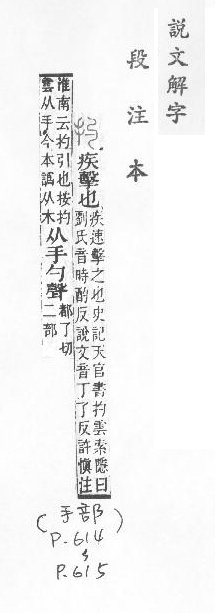 說文解字
段注本
扚
疾擊也
疾速擊之也史記天官書扚雲索隱曰
劉氏音時酌反說文音丁了反許愼注
淮南云扚引也按扚
雲从手今本譌从木
从手勺聲
都了切
二部
(手部)
P.614
P.615